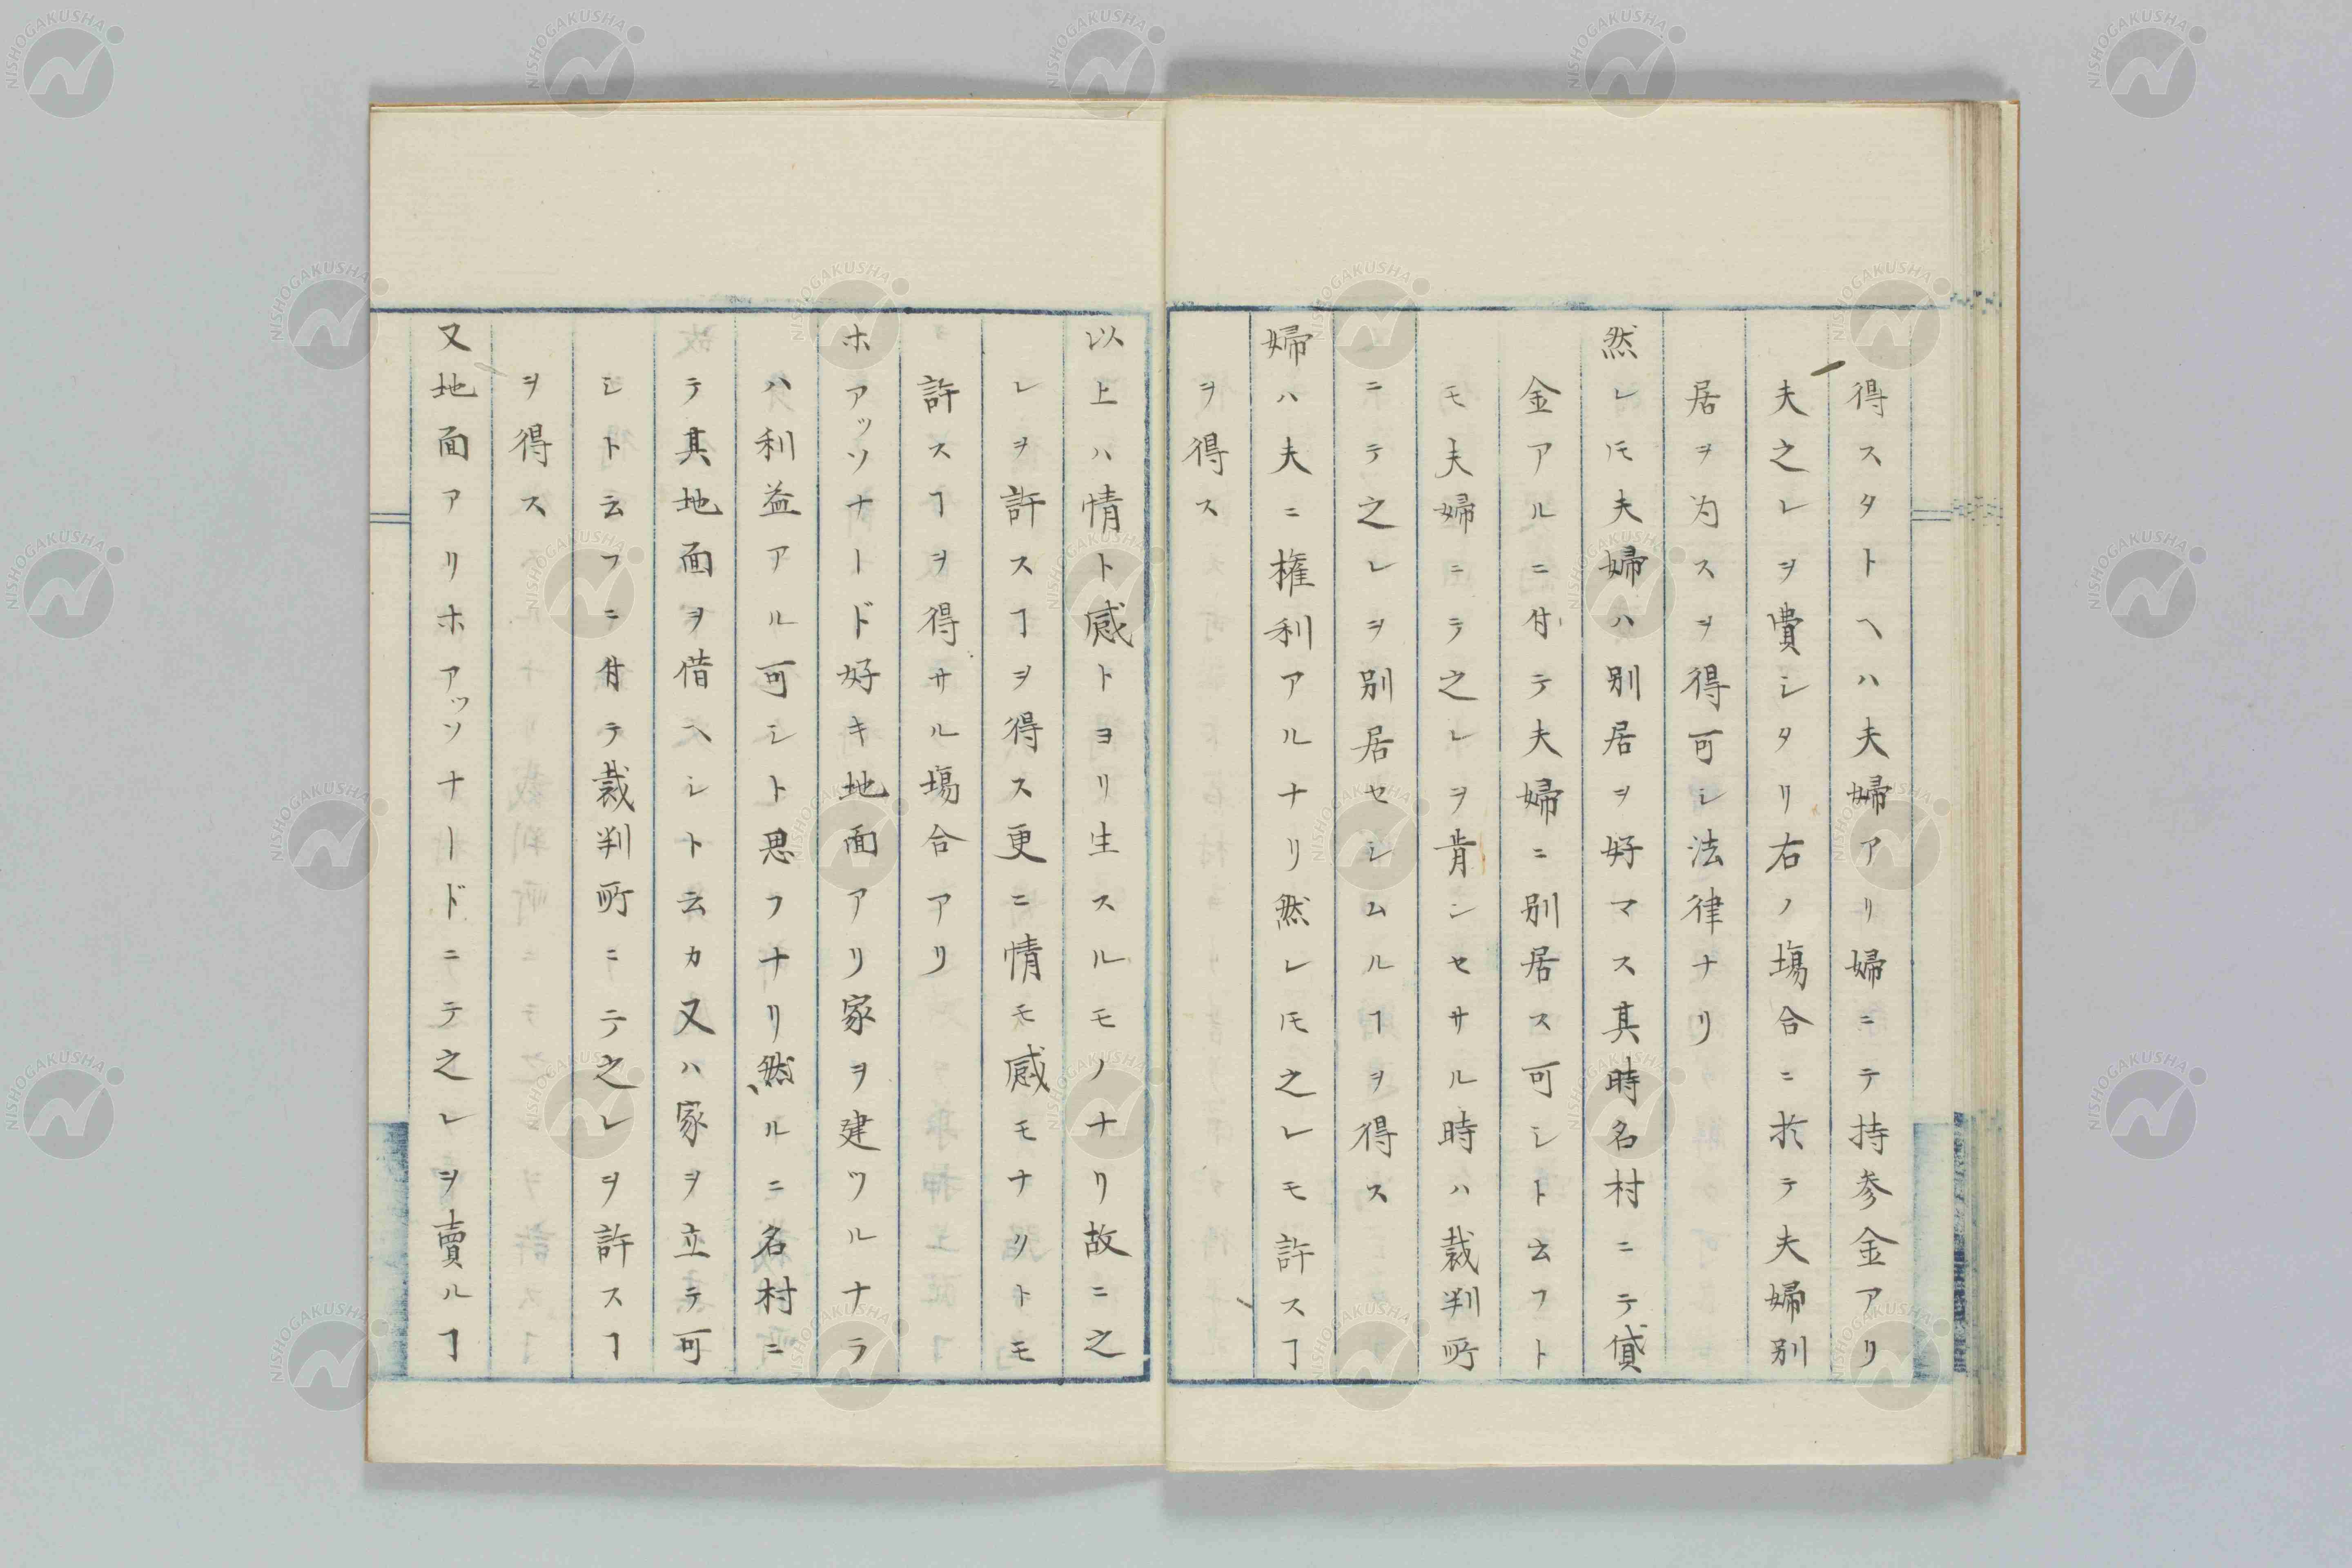 得スタトヘハ夫婦アリ婦ニテ持参金アリ
夫之レヲ費シタリ右ノ塲合ニ於テ夫婦別
居ヲ为スヲ得可シ法律ナリ
然レㇳモ夫婦ハ別居ヲ好マス其時名村ニテ貸
金アルニ付テ夫婦ニ別居ス可シト云フト
モ夫婦ニテ之レヲ肯ンセサル時ハ裁判所
ニテ之レヲ別居セシムルヿヲ得ス
婦ハ夫ニ権利アルナリ然レㇳモ之レモ許スヿ
ヲ得ス
以上ハ情ト感トヨリ生スルモノナリ故ニ之
レヲ許スヿヲ得ス更ニ情モ感モナリトモ
許スヿヲ得サル塲合アリ
ホアッソナード好キ地面アリ家ヲ建ツルナラ
ハ利益アル可シト思フナリ然ルニ名村ニ
テ其地面ヲ借ヘシト云カ又ハ家ヲ立テ可
シト云フニ付テ裁判所ニテ之レヲ許スヿ
ヲ得ス
又地面アリホアッソナードニテ之レヲ賣ルヿ
NISHOGAKUSHA